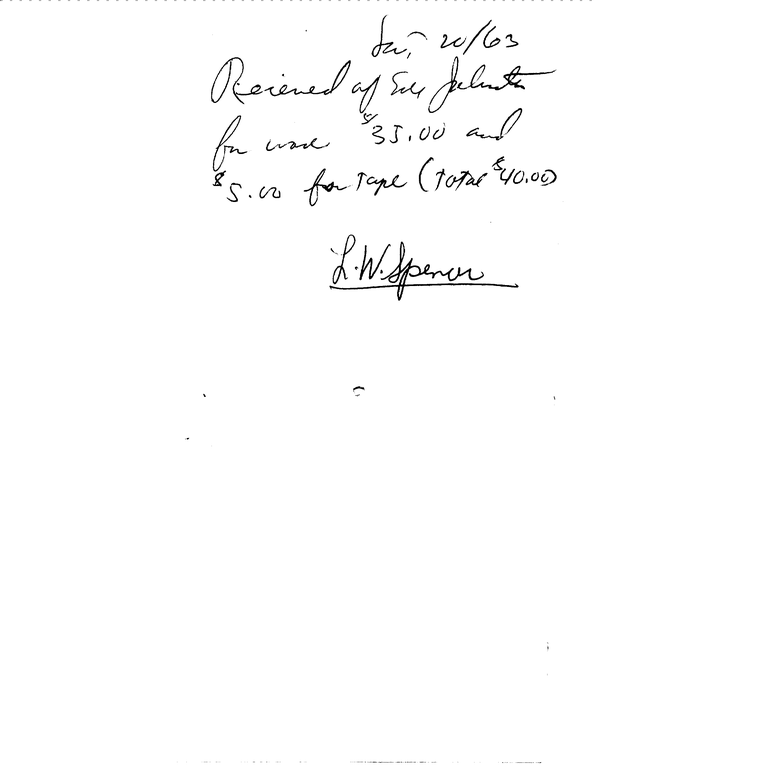 20/63
Recieved of Johnston
for work $35.00 and
$5.00 for Tape (Total $40.00)
L.W. Spencer